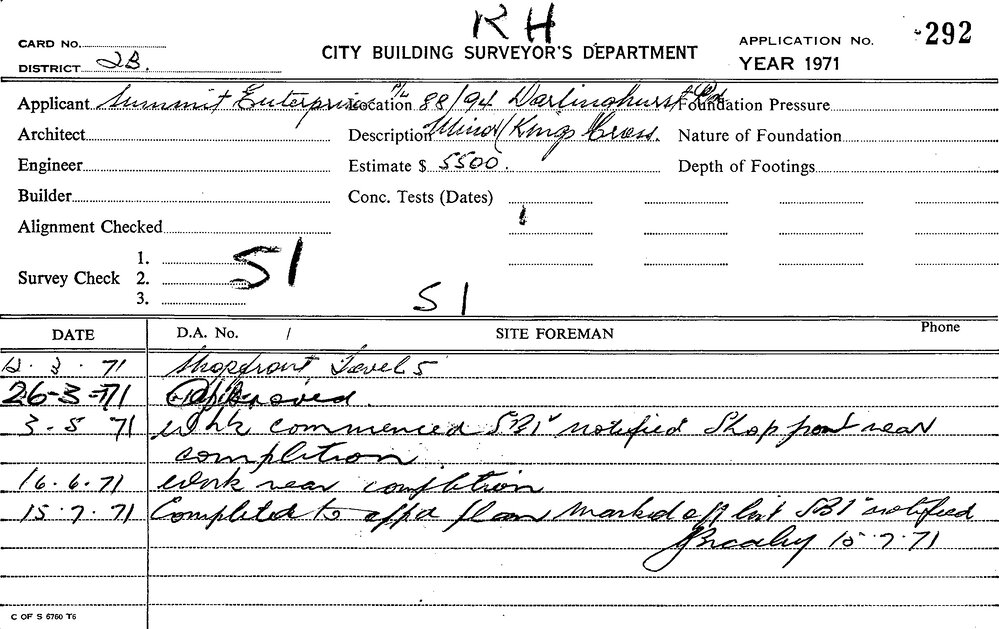 RH
CARD No. CITY BUILDING SURVEYOR'S DEPARTMENT APPLICATION No. 292
DISTRICT 2B. YEAR 1971
Applicant Summit Enterprises P/L Location 88/94 Darlinghurst Rd Foundation Pressure
Architect Description Minor (Kings Cross. Nature of Foundation
Engineer Estimate $ 5500. Depth of Footings
Builder Conc. Tests (Dates)
Alignment Checked
1.
Survey Check 2. 51
3.
51
DATE D.A. No. / SITE FOREMAN Phone
12.3.71 Shopfront Level 5
26-3-71 Approved.
3-5 71 Work commenced SBI notified Shop front near
completion
16.6.71 Work near completion
15.7.71 Completed to appd plan marked off list SBI notified
15.7.71
C OF S 6760 T6